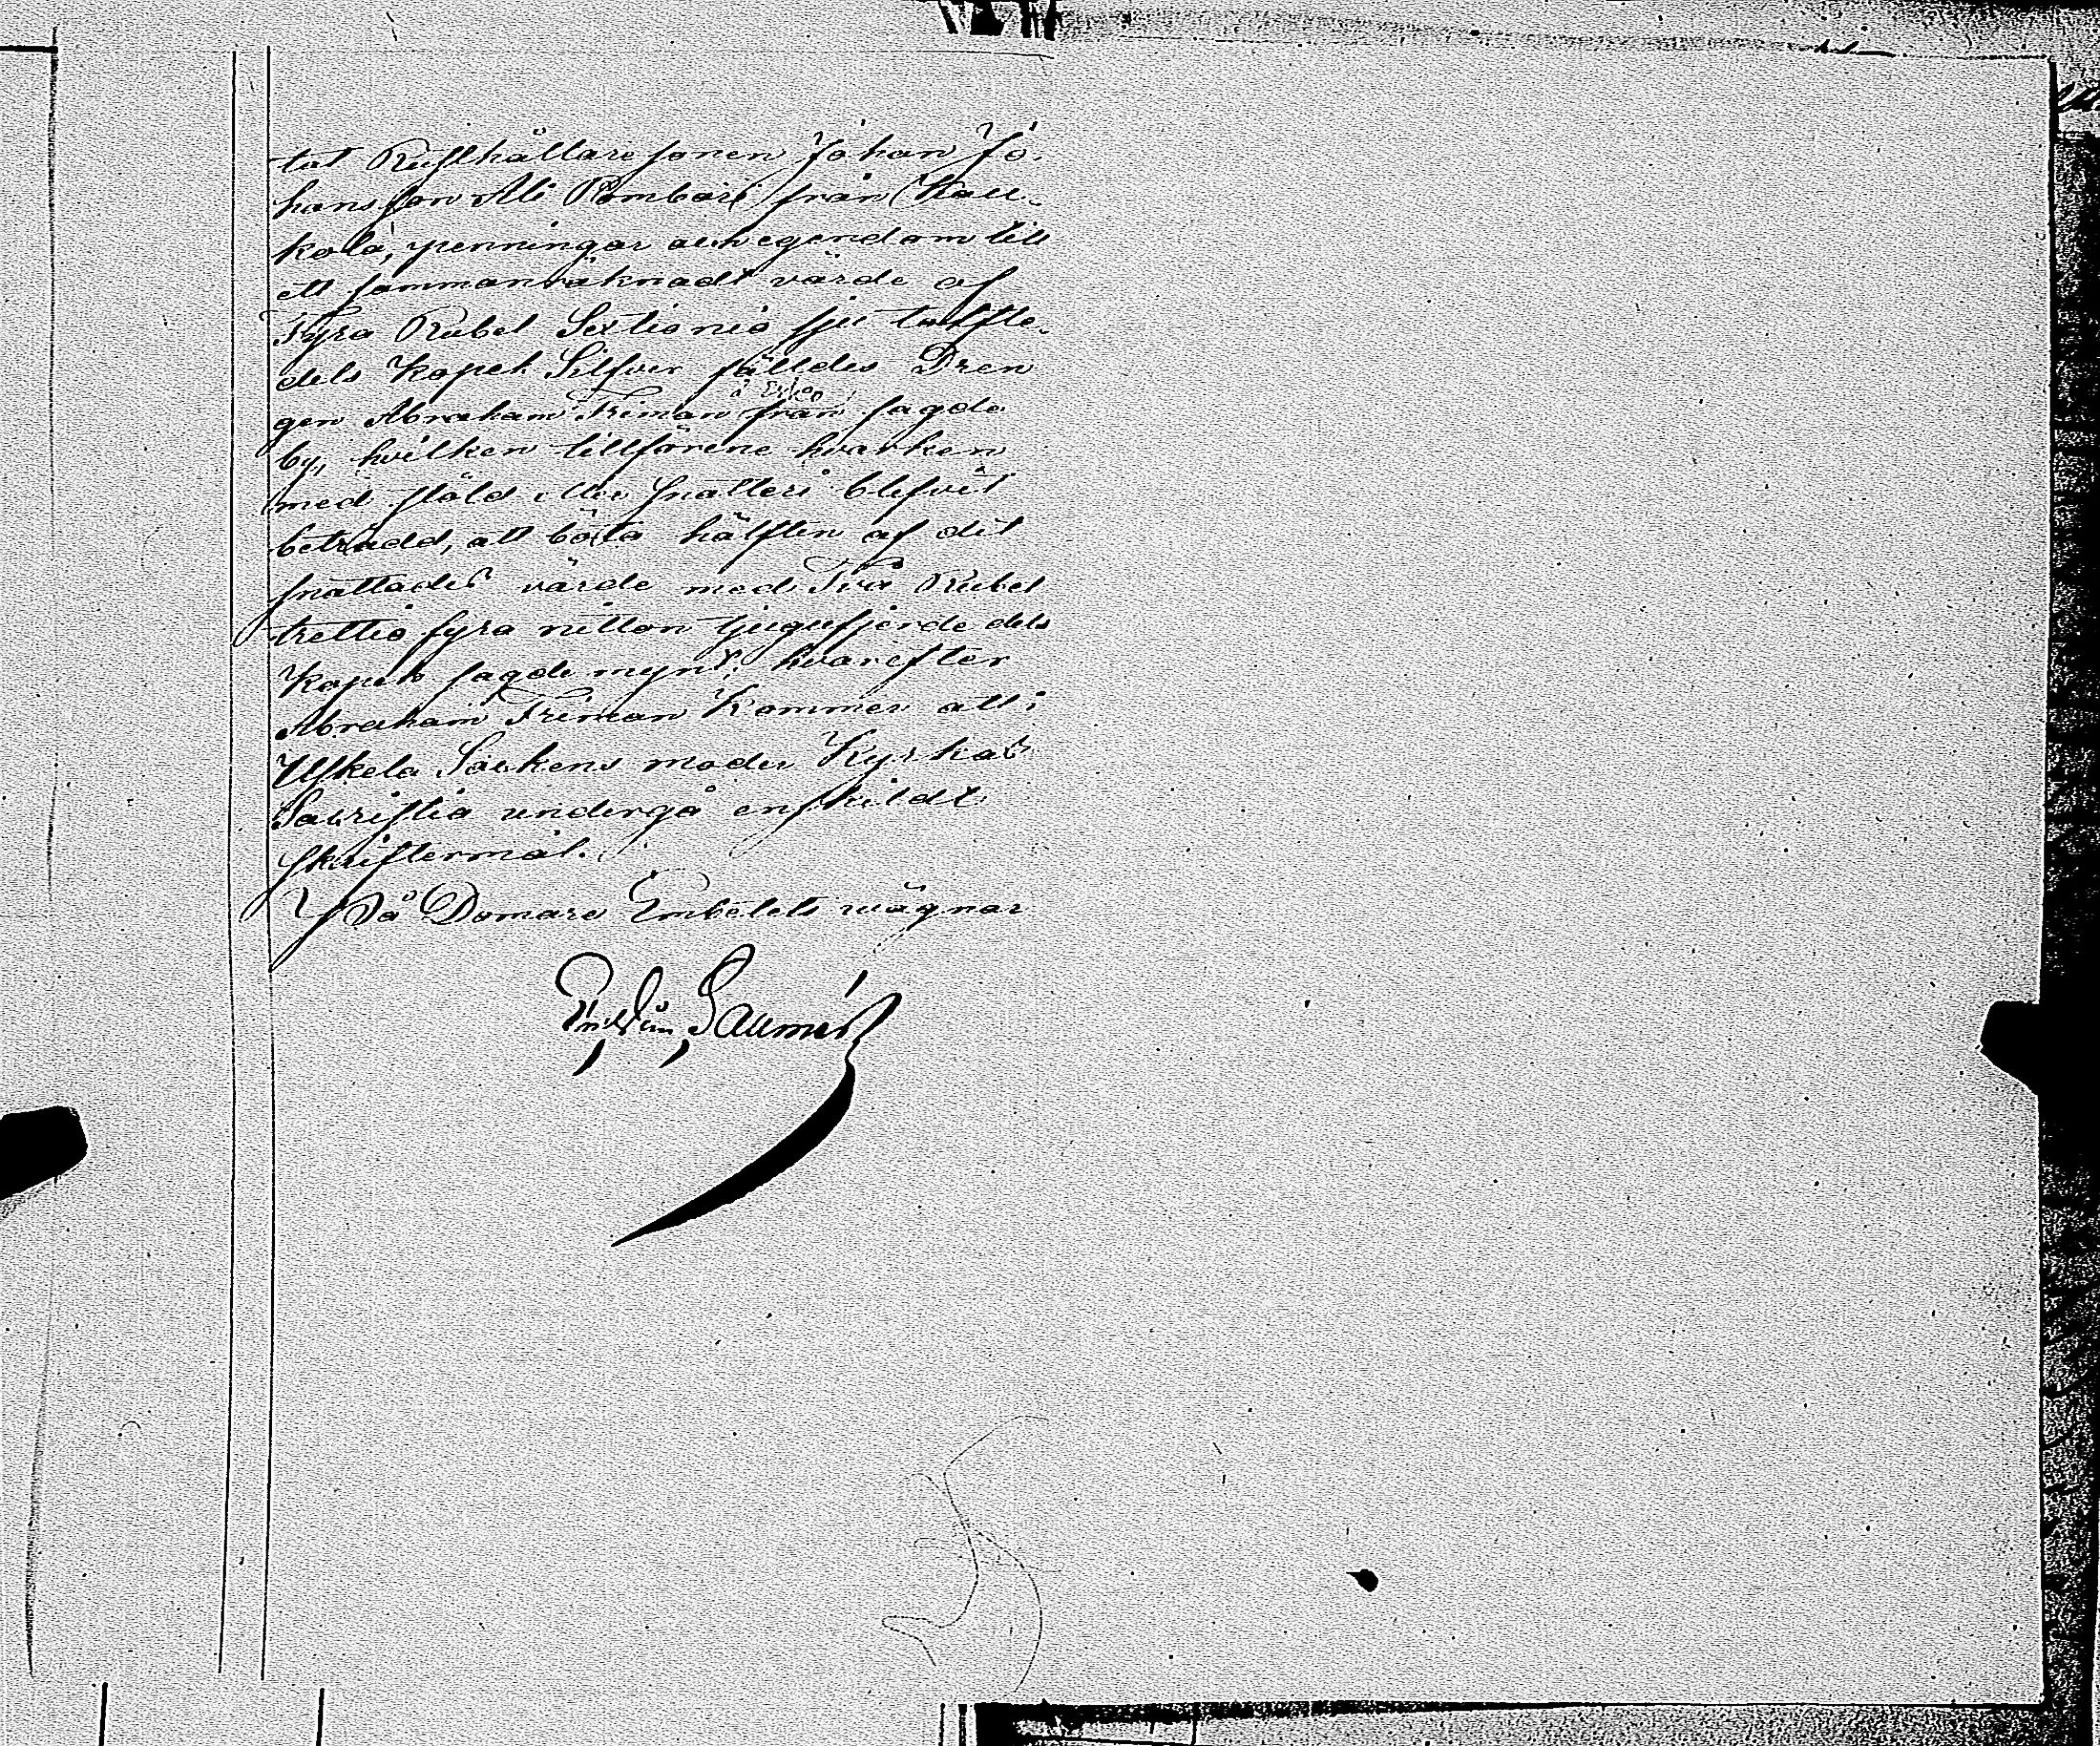 tat Rusthållaresonen Johan Jo-
hansson Ali Rombari från Kau-
kola, penningar och egendom till
ett sammanräknadt värde af
Fyra Rubel Sextionio sju tolfte-
dels Kopek Silfver fälldes Dren
gen Abraham Friman från sagde
by, hvilken tillförene hvarken
med stöld eller snatteri blifvit
beträdd, att böta hälften af det
snattades värde med Två Rubel
trettio fyra nitton tjugufjerdedels
Kopek sagde mynt; hvarefter
Abraham Friman kommer att i
Ulskela Sockens moder Kyrkas
Sacristia undergå enskildt
skriftermål.
På Domare Embetets vägnar